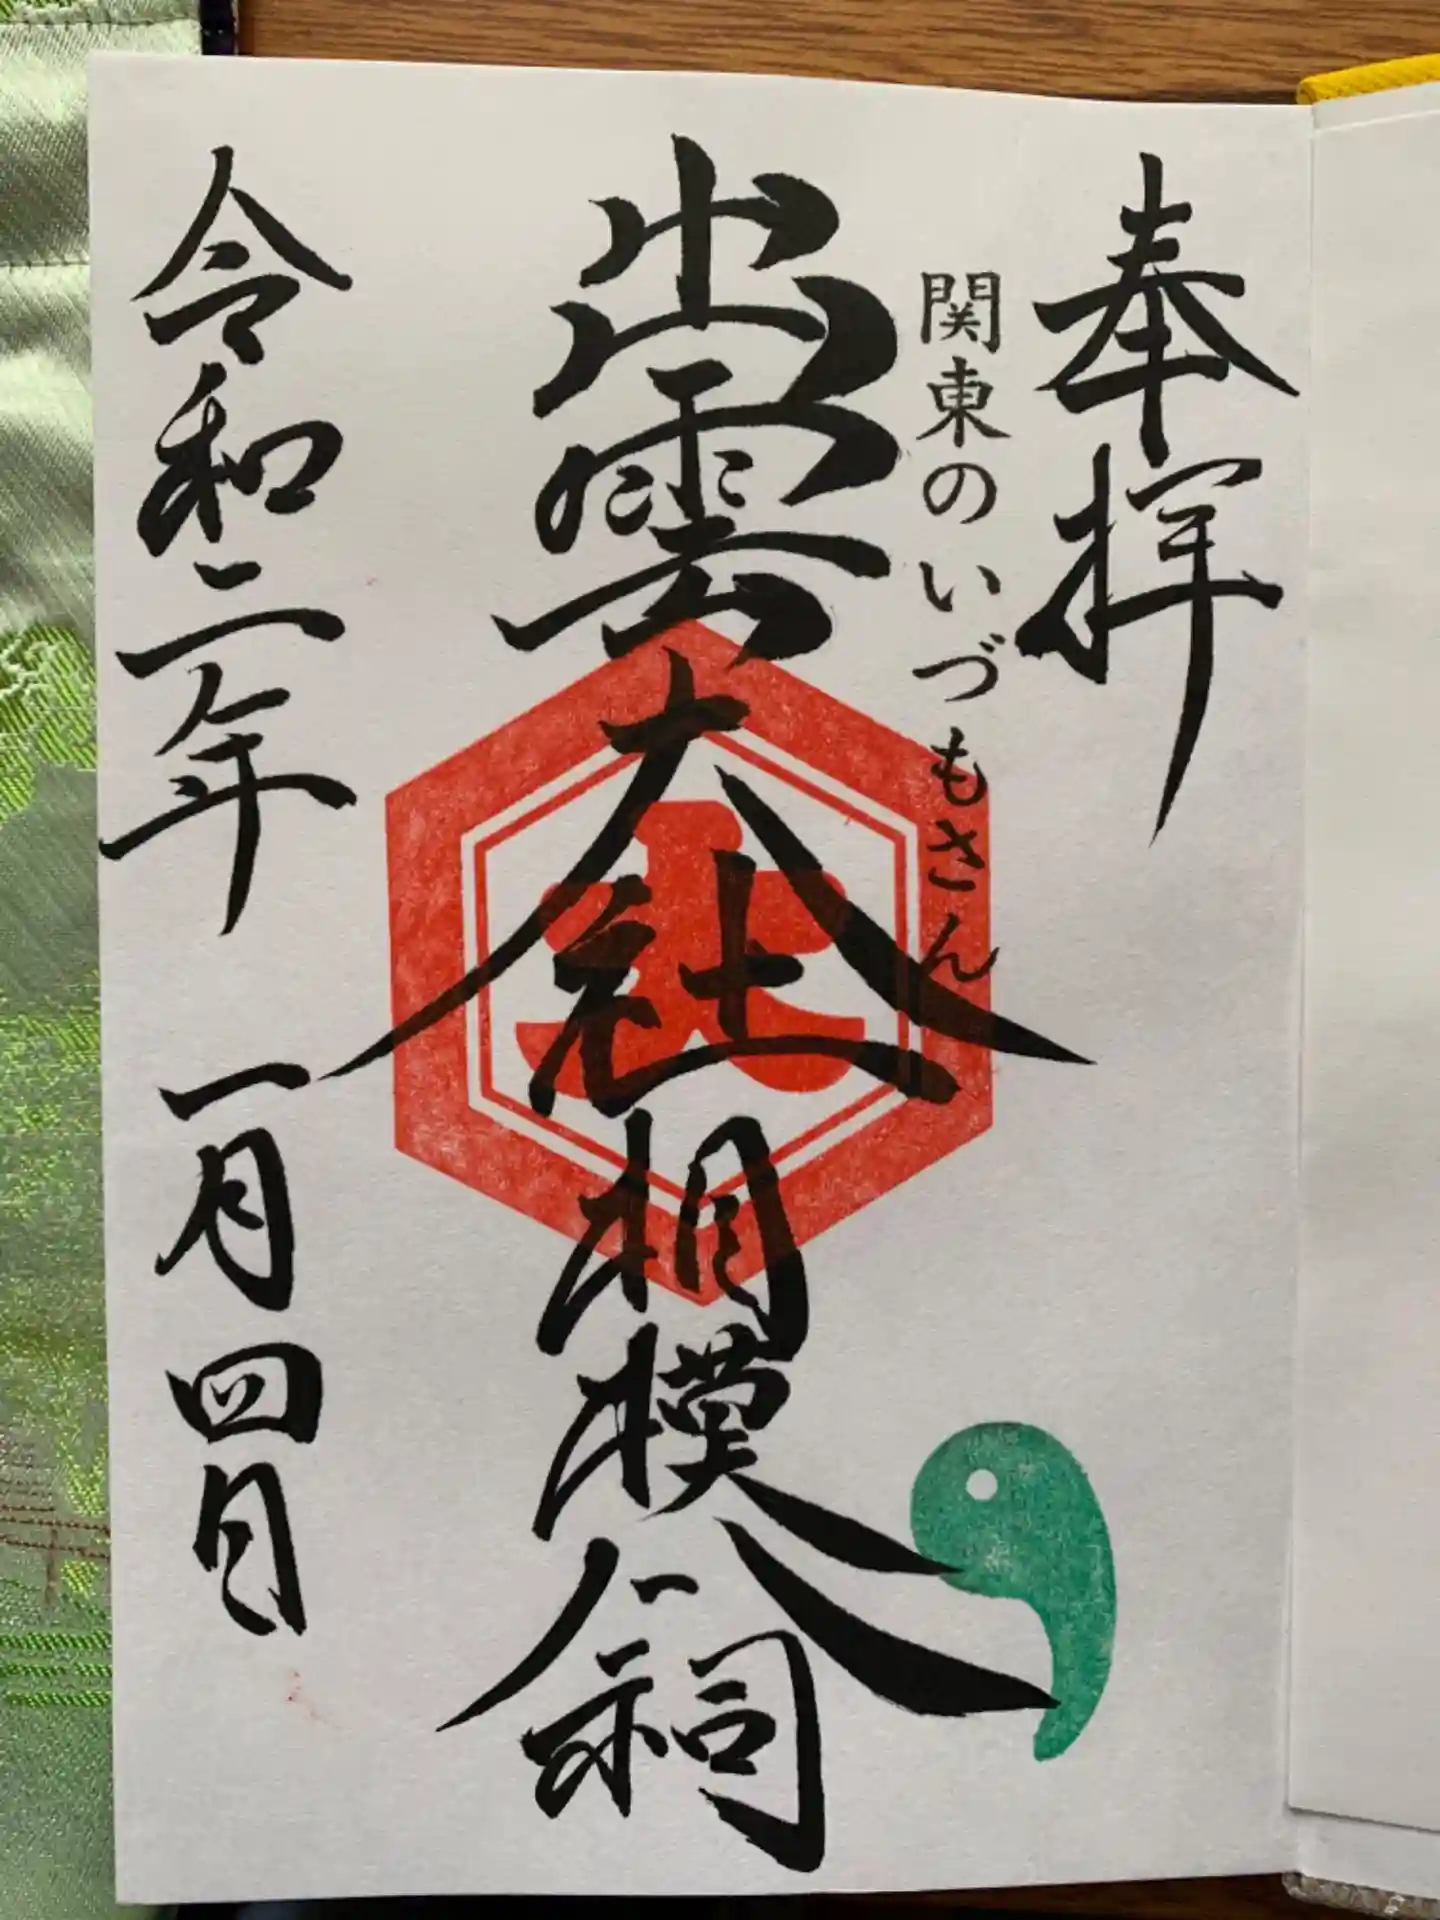 奉拝
関東のいづもさん
出雲大社相模分祠
令和二年 一月四日